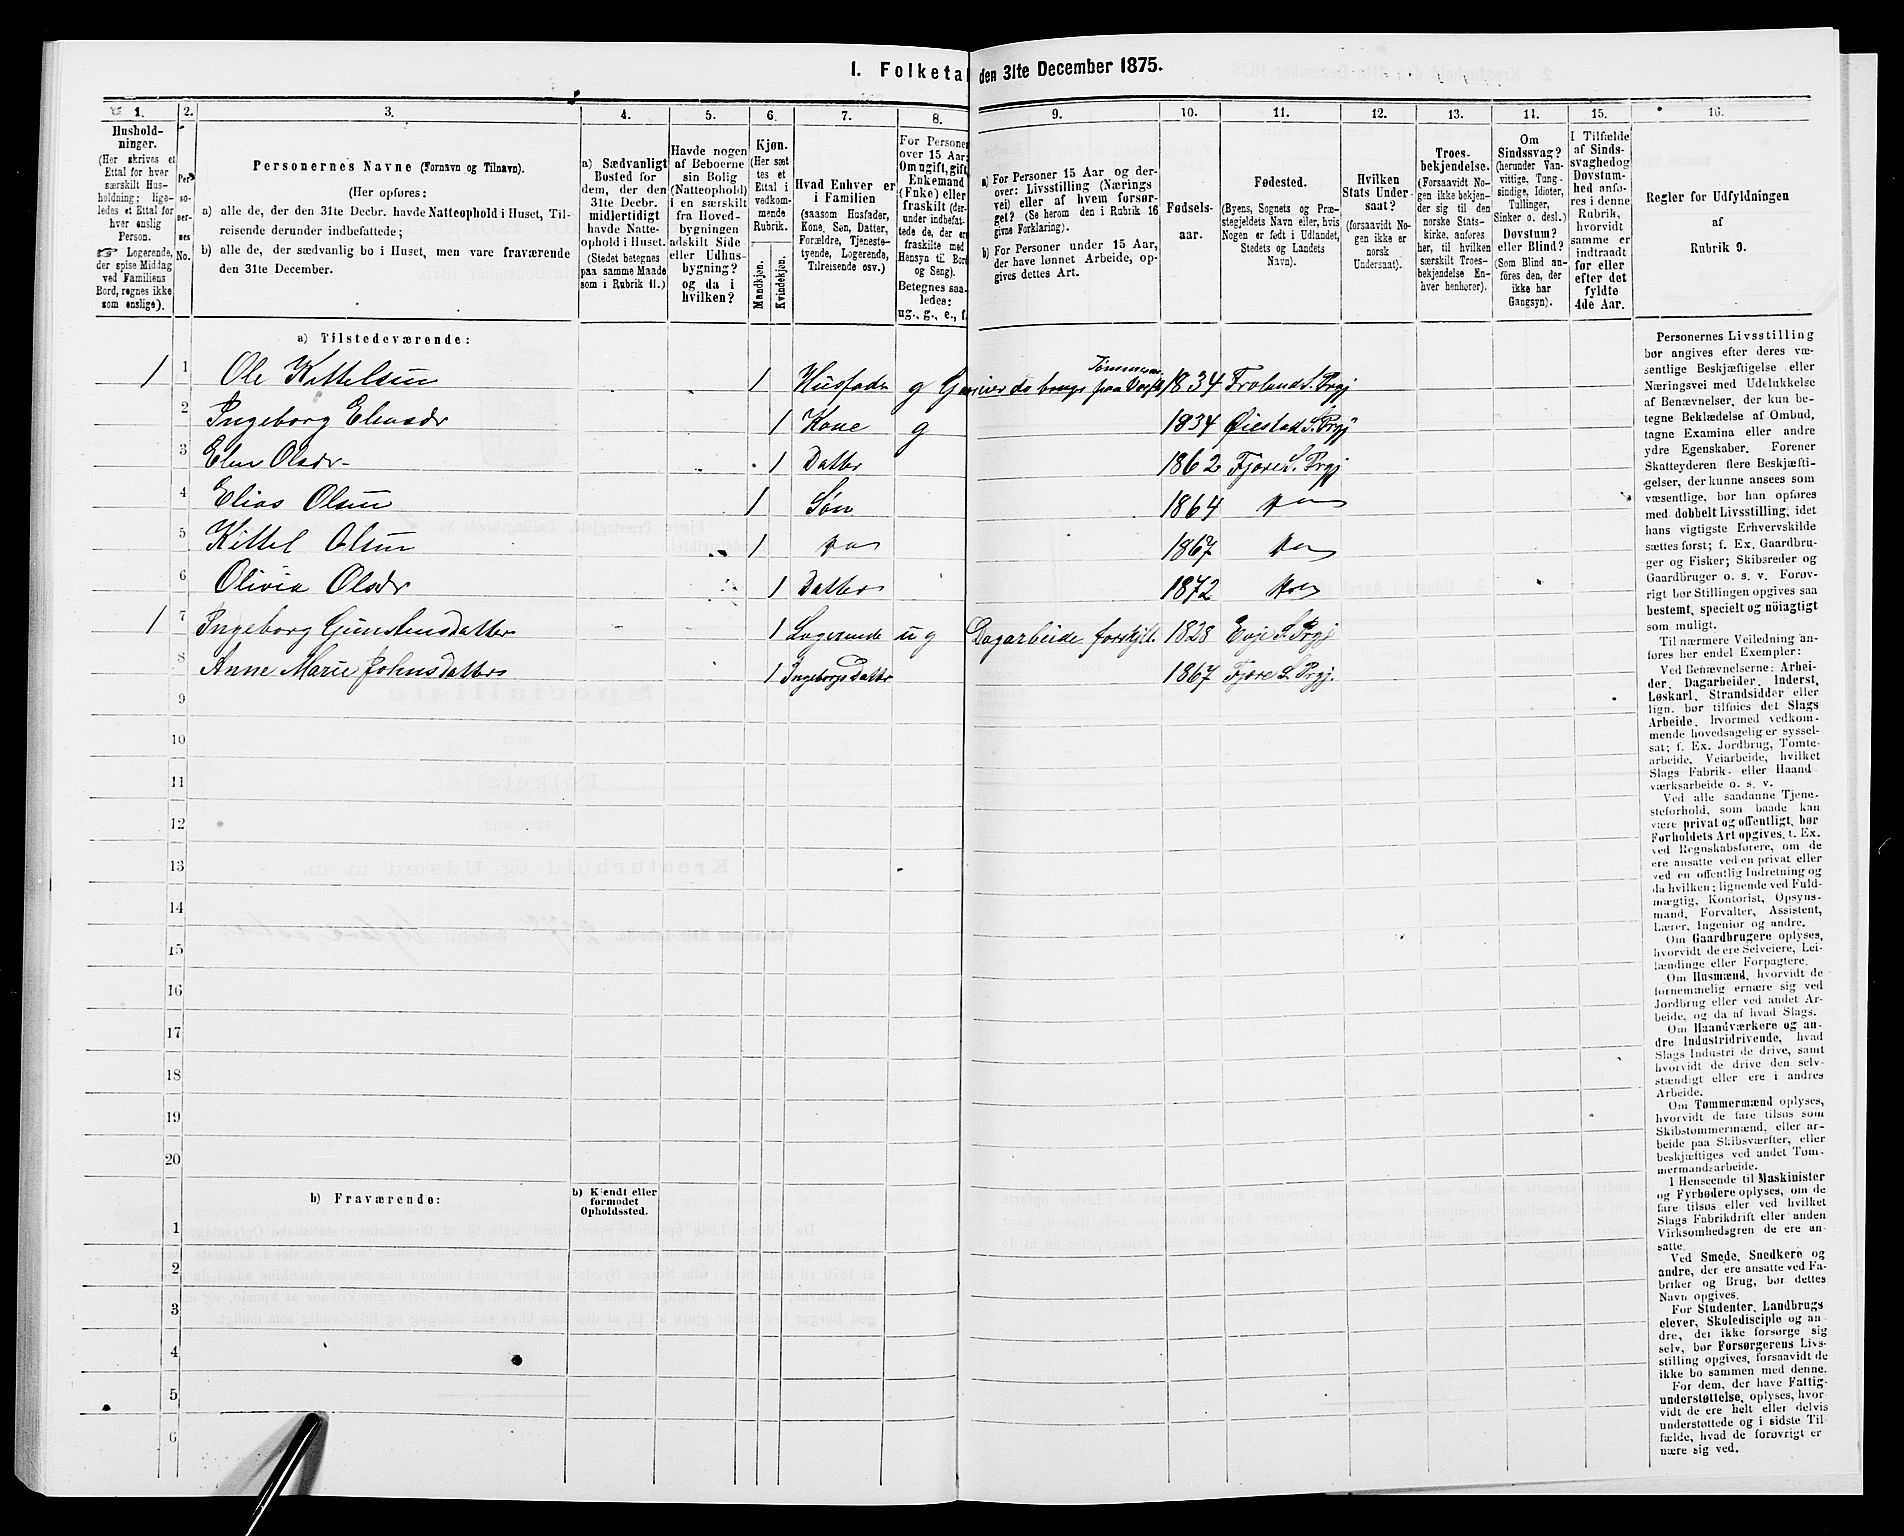 1. Folketal den 31te December 1875.
1. 2. 3. 4. 5. 6. 7. 8. 9. 10. 11. 12. 13. 14. 15. 16.
Hushold-
ninger.
(Her skrives et
Ettal for hver
særskilt Hus-
holdning; lige-
ledes et Ettal for
hver enslig
Person.
☞ Logerende,
der spise Middag
ved Familiens
Bord, regnes ikke
som enslige).
Per
so-
ner-
nes
No.
Personernes Navne (Fornavn og Tilnavn).
(Her opføres:
a) alle de, der den 31te Decbr. havde Natteophold i Huset, Til-
reisende derunder indbefattede;
b) alle de, der sædvanlig bo i Huset, men vare fraværende
den 31te December.
a) Sædvanligt
Bosted for
dem, der den
31te Decbr.
midlertidigt
havde Natte-
ophold i Huset.
(Stedet betegnes
paa samme Maade
som i Rubrik 11.)
Havde nogen
af Beboerne
sin Bolig
(Natteophold)
i en særskilt
fra Hoved-
bygningen
adskilt Side
eller Udhus-
bygning?
og da i
hvilken?
Kjøn.
(Her sæt
tes et
Ettal i
vedkom-
mende
Rubrik.
Mandkjøn.
Kvindekjøn.
Hvad Enhver er
i Familien
(saasom Husfader,
Kone, Søn, Datter,
Forældre, Tjeneste-
tyende, Logerende,
Tilreisende osv.)
For Personer
over 15 Aar:
Om ugift, gift,
Enkemand
(Enke) eller
fraskilt (der-
under indbefat-
tede de, der er
fraskilte med
Hensyn til Bord
og Seng).
Betegnes saa-
ledes:
ug., g., e., f.
a) For Personer 15 Aar og der-
over: Livsstilling (Nærings
vei) eller af hvem forsør-
get? (Se herom den i Rubrik 16
givne Forklaring).
b) For Personer under 15 Aar,
der have lønnet Arbeide, op-
gives dettes Art.
Fødsels-
aar.
Fødested.
(Byens, Sognets og Præ-
stegjeldets Navn eller, hvis
Nogen er født i Udlandet,
Stedets og Landets
Navn).
Hvilken
Stats Under-
saat?
(forsaavidt No-
gen ikke er
norsk
Undersaat).
Troes-
bekjendelse.
(Forsaavidt No-
gen ikke bekjen-
der sig til den
norske Stats-
kirke, anføres
her, til hvilken
særskilt Troes-
bekjendelse En-
hver henhører).
Om
Sindssvag?
(herunder Van-
vittige, Tung-
sindige, Idioter,
Tullinger,
Sinker o. desl.)
Døvstum?
eller Blind?
(Som Blind an-
føres den, der
ikke har
Gangsyn).
I Tilfælde
af Sinds-
svaghedog
Døvstum-
hed anfø-
res i denne
Rubrik,
hvorvidt
samme er
indtraadt
før eller
efter det
fyldte
4de Aar.
Regler for Udfyldningen
af
Rubrik 9.
a) Tilstedeværende:
1 1 Ole Kittelsen 1 Husfader g Gaardbruger Tømmerm. paa Værft 1834 Froland S. Prgj
2 Ingeborg Eliasdr 1 Kone g 1834 Øiestad S. Prgj
3 Elen Olsdr 1 Datter 1862 Fjære S. Prgj
4 Elias Olsen 1 Søn 1864 do
5 Kittel Olsen 1 do 1867 do
6 Olivia Olsdr 1 Datter 1872 do
1 7 Ingeborg Gunstensdatter 1 Logerende ug Dagarbeide forskjell. 1828 Evje S. Prgj
8 Anne Marie Johnsdatter 1 Ingeborgs Datter 1867 Fjære S. Prgj.
9
10
11
12
13
14
15
16
17
18
19
20
b) Fraværende:
b) Kjendt eller
formodet
Opholdssted.
1
2
3
4
5
6
Personernes Livsstilling
bør angives efter deres væ-
sentlige Beskjæftigelse eller
Næringsvei med Udelukkelse
af Benævnelser, der kun be-
tegne Beklædelse af Ombud,
tagne Examina eller andre
ydre Egenskaber. Forener
Skatteyderen flere Beskjæfti-
gelser, der kunne ansees som
væsentlige, bør han opføres
med dobbelt Livsstilling, idet
hans vigtigste Erhvervskilde
sættes først; f. Ex. Gaardbru-
ger og Fisker; Skibsreder og
Gaardbruger o. s. v. Forøv-
rigt bør Stillingen opgives saa
bestemt, specielt og nöiagtigt
som muligt.
Til nærmere Veiledning an-
føres her endel Exempler:
Ved Benævnelserne: Arbei-
der, Dagarbeider, Inderst,
Løskarl, Strandsidder eller
lign. bør tilføies det Slags
Arbeide, hvormed vedkom-
mende hovedsagelig er syssel-
sat; f. Ex. Jordbrug, Tomte-
arbeide, Veiarbeide, hvilket
Slags Fabrik- eller Haand
værksarbeide o. s. v.
Ved alle saadanne Tjene-
steforhold, som baade kan
være privat og offentligt, bør
Forholdets Art opgives, t. Ex.
ved Regnskabsførere, om de
ere ansatte ved en privat eller
ved en offentlig Indretning og
da hvilken; lignende ved Fuld-
mægtig, Kontorist, Opsyns-
mand, Forvalter, Assistent,
Lærer, Ingeniør og andre.
Om Gaardbrugere oplyses,
hvorvidt de ere Selveiere, Lei-
lændinge eller Forpagtere.
Om Husmænd, hvorvidt de
fornemmelig ernære sig ved
Jordbrug eller ved andet Ar-
beide, og da af hvad Slags.
Om Haandværkere og an-
dre Industridrivende, hvad
Slags Industri de drive, samt
hvorvidt de drive den selv-
stændigt eller ere i andres
Arbeide.
Om Tømmermænd oplyses,
hvorvidt de fare tilsøs som
Skibstømmermænd, eller ar-
beide paa Skibsværfter, eller
beskjæftiges ved andet Tøm-
mermandsarbeide.
I Henseende til Maskinister
og Fyrbødere oplyses, om de
fare tilsøs eller ved hvilket
Slags Fabrikdrift eller anden
Virksomhedsgren de ere an-
satte.
Ved Smede, Snedkere og
andre, der ere ansatte ved Fa-
briker og Brug, bør dettes
Navn opgives.
For Studenter, Landbrugs
elever, Skoledisciple og an
dre, der ikke forsørge sig
selv, bør Forsørgerens Livs-
stilling opgives, forsaavidt de
ikke bo sammen med denne.
For dem, der have Fattig-
understøttelse, oplyses, hvor-
vidt de ere helt eller delvis
understøttede og i sidste Til-
fælde, hvad de forøvrigt er
nære sig ved.